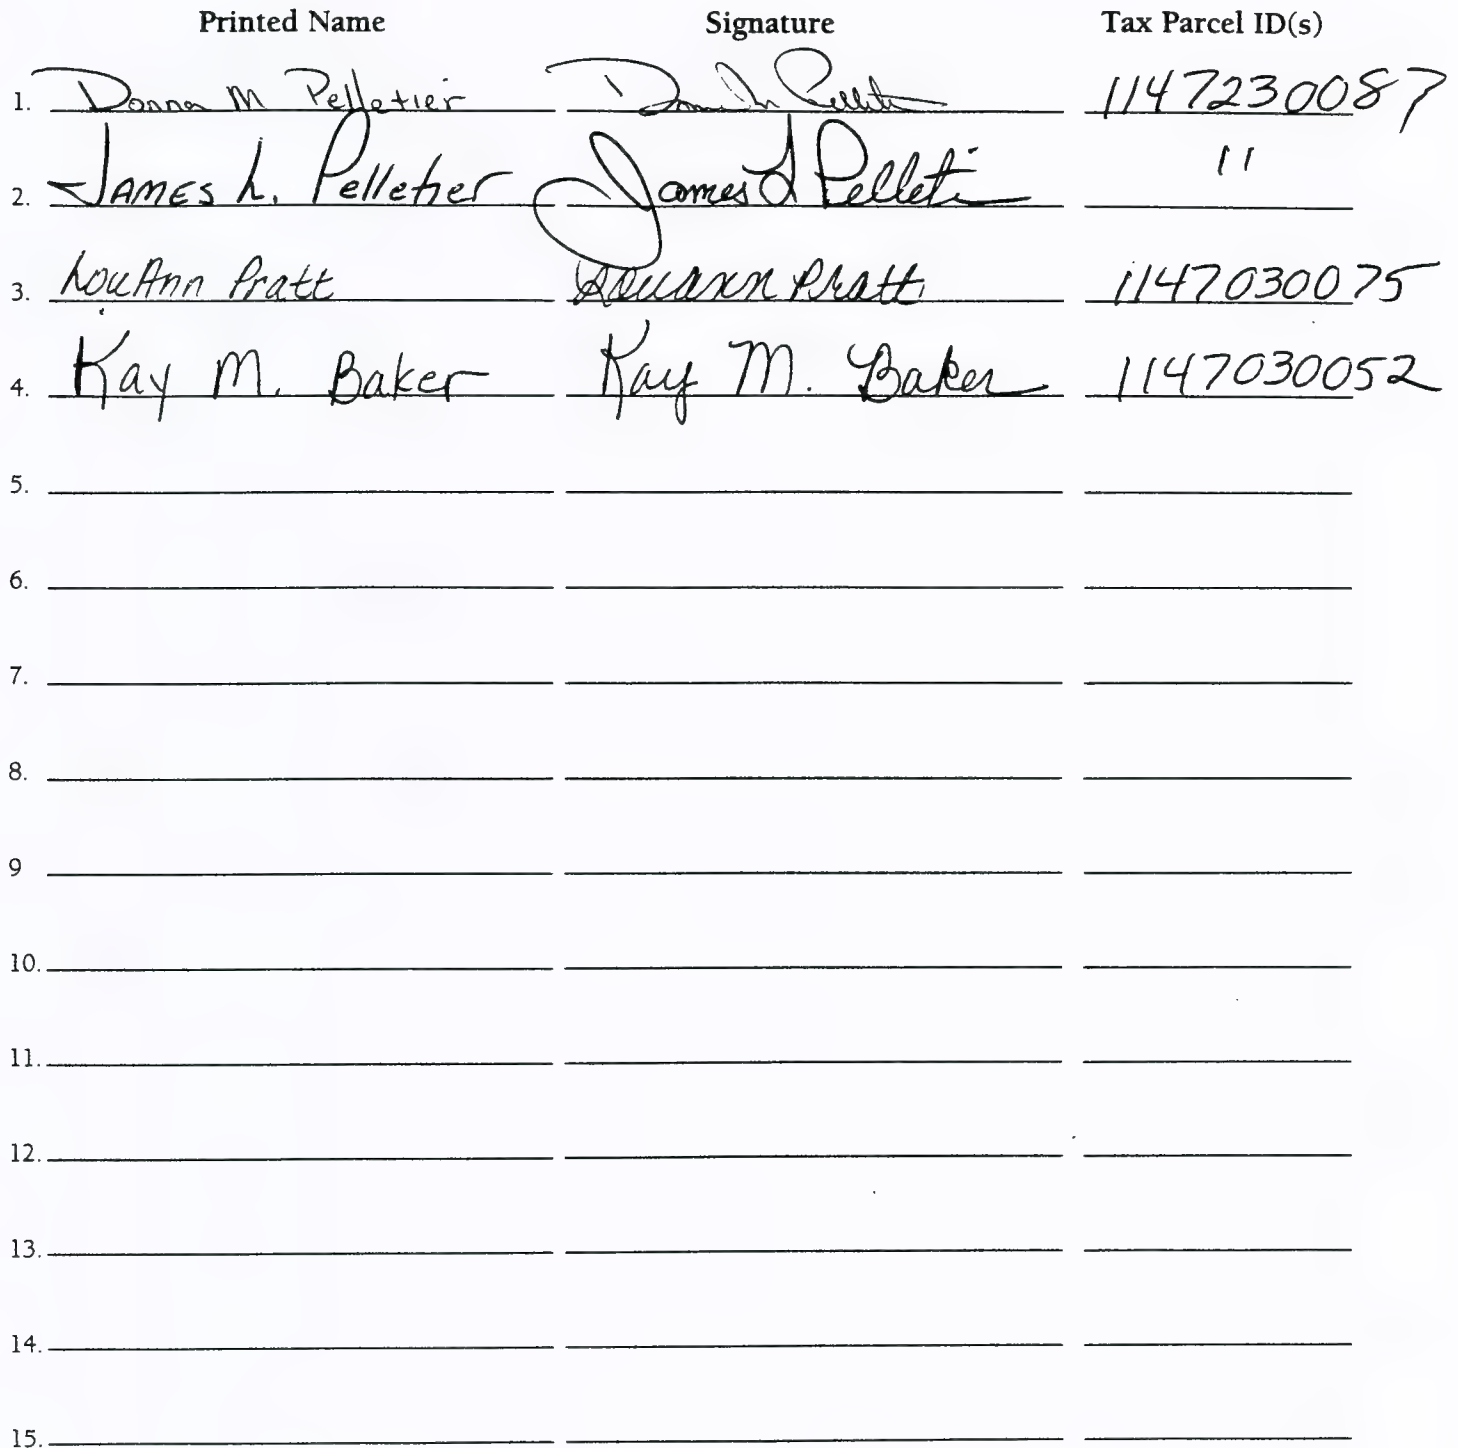 Printed Name Signature Tax Parcel ID(s)
1. Donna M Pelletier Donna M Pelletier 1147230087
2. JAMES L. Pelletier James L Pelletier 11
3. LouAnn Pratt Louann Pratt 1147030075
4. Kay M. Baker Kay M. Baker 1147030052
5.
6.
7.
8.
9
10.
11.
12.
13.
14.
15.